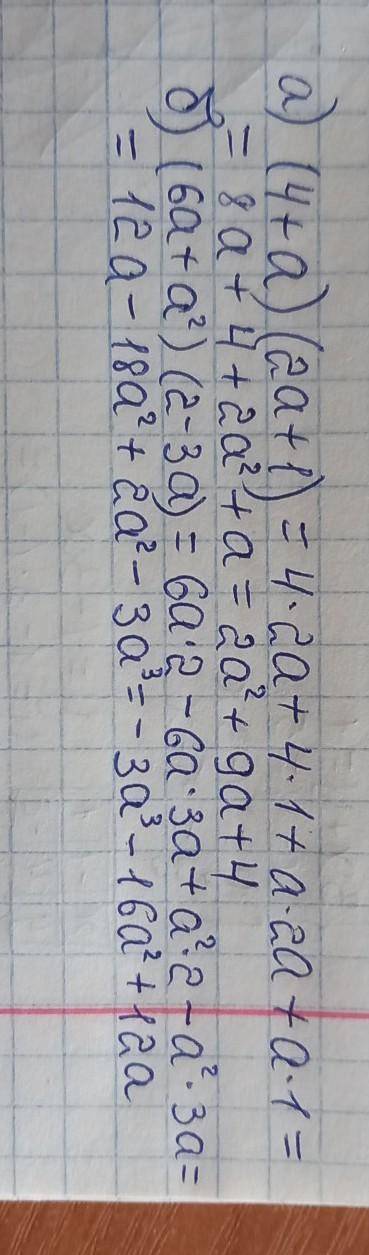 а) (4+a)(2a+1) = 4·2a + 4·1 + a·2a + a·1 =
= 8a + 4 + 2a² + a = 2a² + 9a + 4
б) (6a + a²)(2-3a) = 6a·2 - 6a·3a + a²·2 - a²·3a =
= 12a - 18a² + 2a² - 3a³ = -3a³ - 16a² + 12a